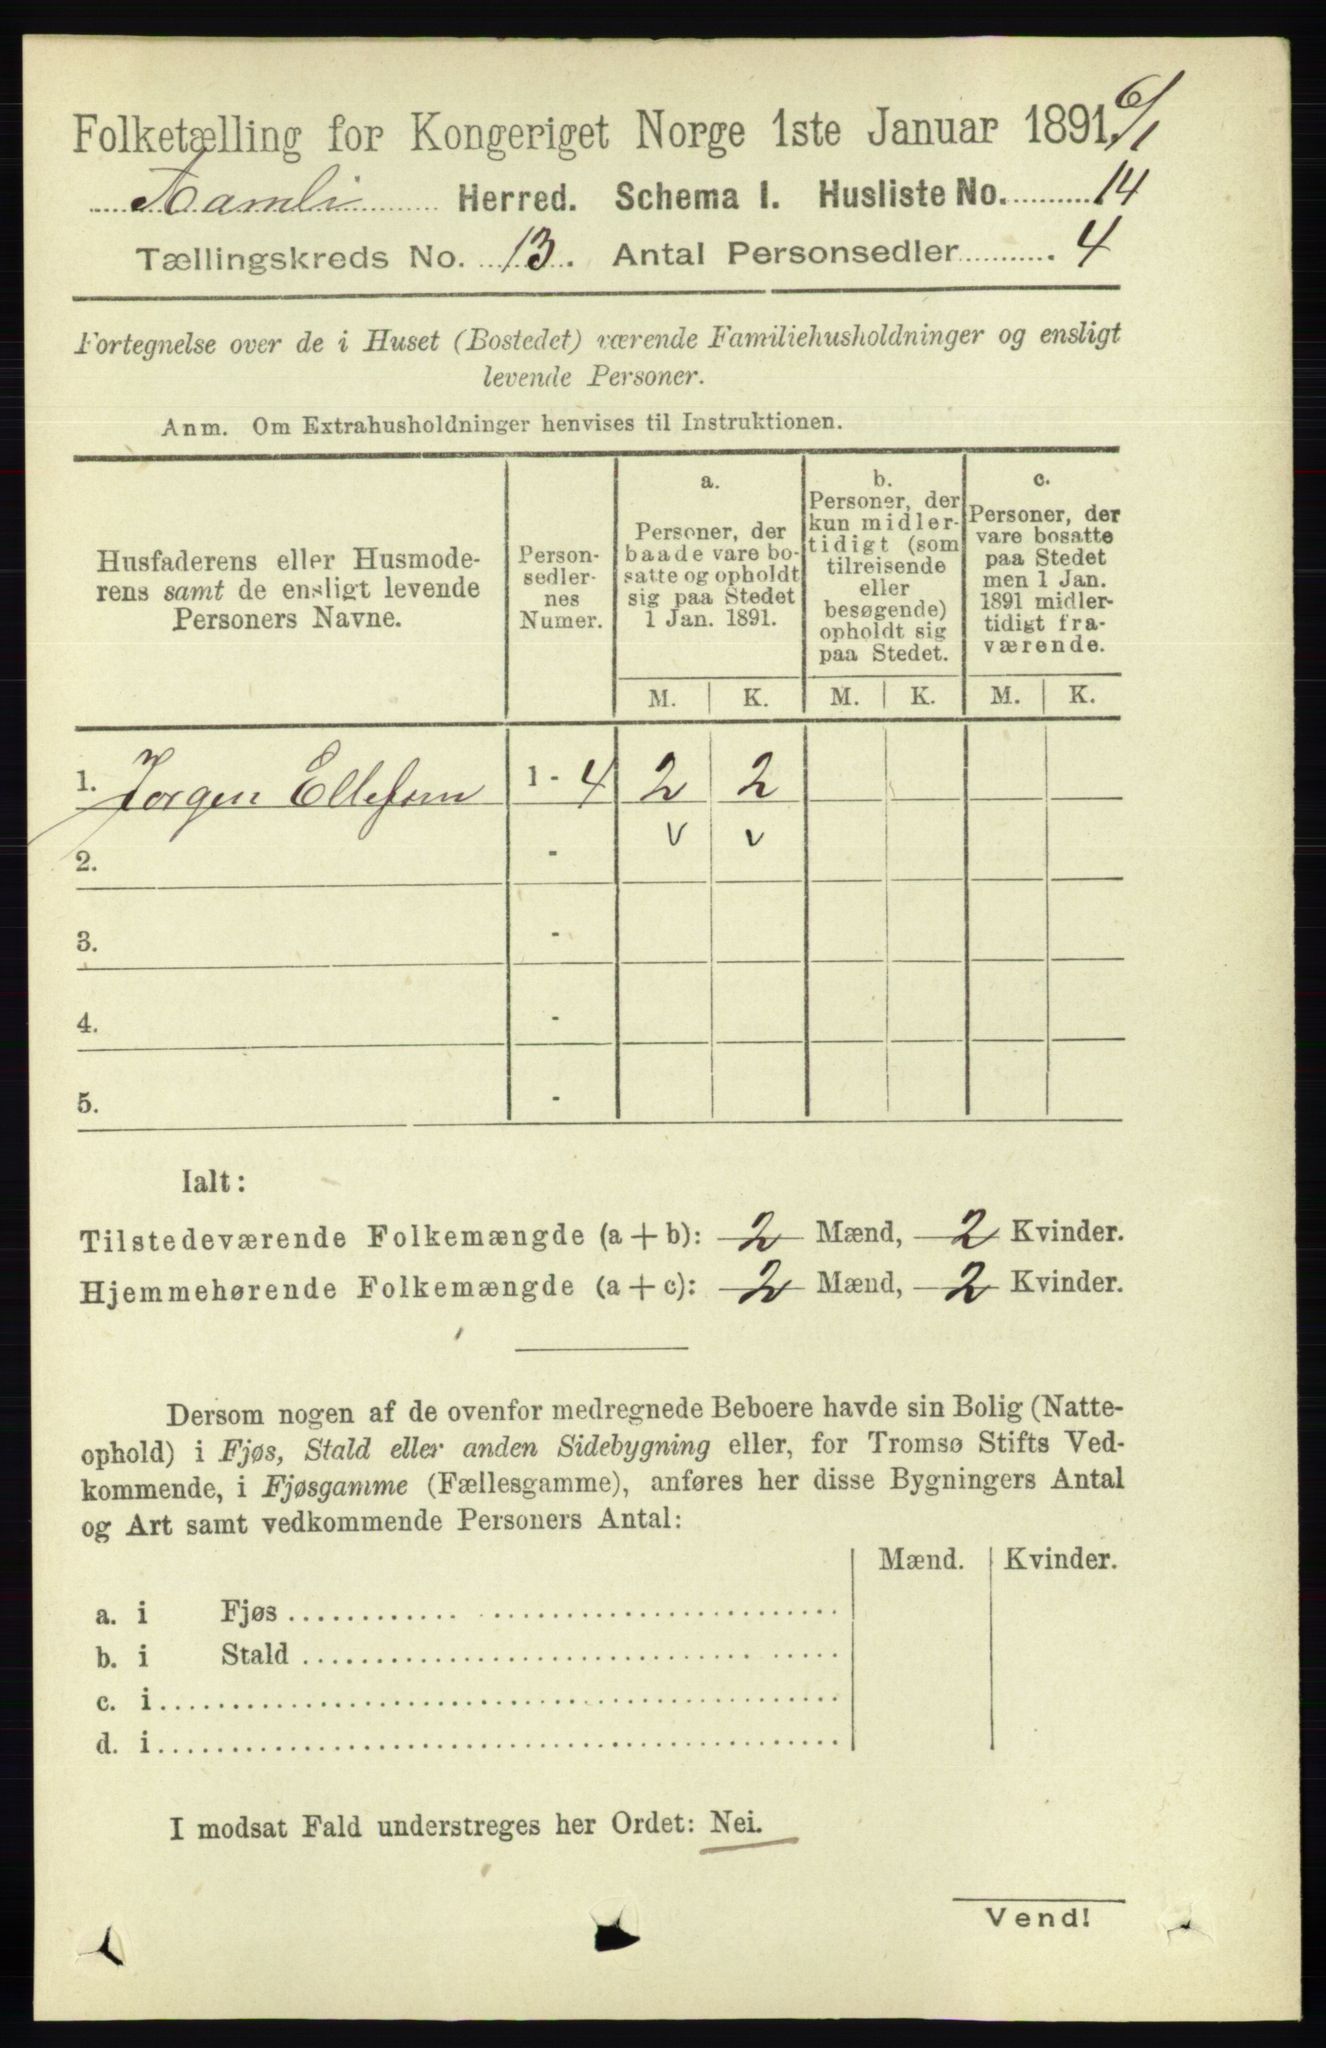 6/1
Folketælling for Kongeriget Norge 1ste Januar 1891.
Aamli Herred. Schema I. Husliste No. 14
Tællingskreds No. 13. Antal Personsedler 4
Fortegnelse over de i Huset (Bostedet) værende Familiehusholdninger og ensligt
levende Personer.
Anm. Om Extrahusholdninger henvises til Instruktionen.
Husfaderens eller Husmode-
rens samt de ensligt levende
Personers Navne.
Person-
sedler-
nes
Numer.
a.
Personer, der
baade vare bo-
satte og opholdt
sig paa Stedet
1 Jan. 1891.
b.
Personer, der
kun midler-
tidigt (som
tilreisende
eller
besøgende)
opholdt sig
paa Stedet.
c.
Personer, der
vare bosatte
paa Stedet
men 1 Jan.
1891 midler-
tidigt fra-
værende.
M. K. M. K. M. K.
1. Jørgen Ellefsen 1 - 4 2 2
2. - v v
3. -
4. -
5. -
Ialt:
Tilstedeværende Folkemængde (a + b): 2 Mænd, 2 Kvinder.
Hjemmehørende Folkemængde (a + c): 2 Mænd, 2 Kvinder.
Dersom nogen af de ovenfor medregnede Beboere havde sin Bolig (Natte-
ophold) i Fjøs, Stald eller anden Sidebygning eller, for Tromsø Stifts Ved-
kommende, i Fjøsgamme (Fællesgamme), anføres her disse Bygningers Antal
og Art samt vedkommende Personers Antal:
Mænd. Kvinder.
a. i Fjøs
b. i Stald
c. i
d. i
I modsat Fald understreges her Ordet: Nei.
Vend!